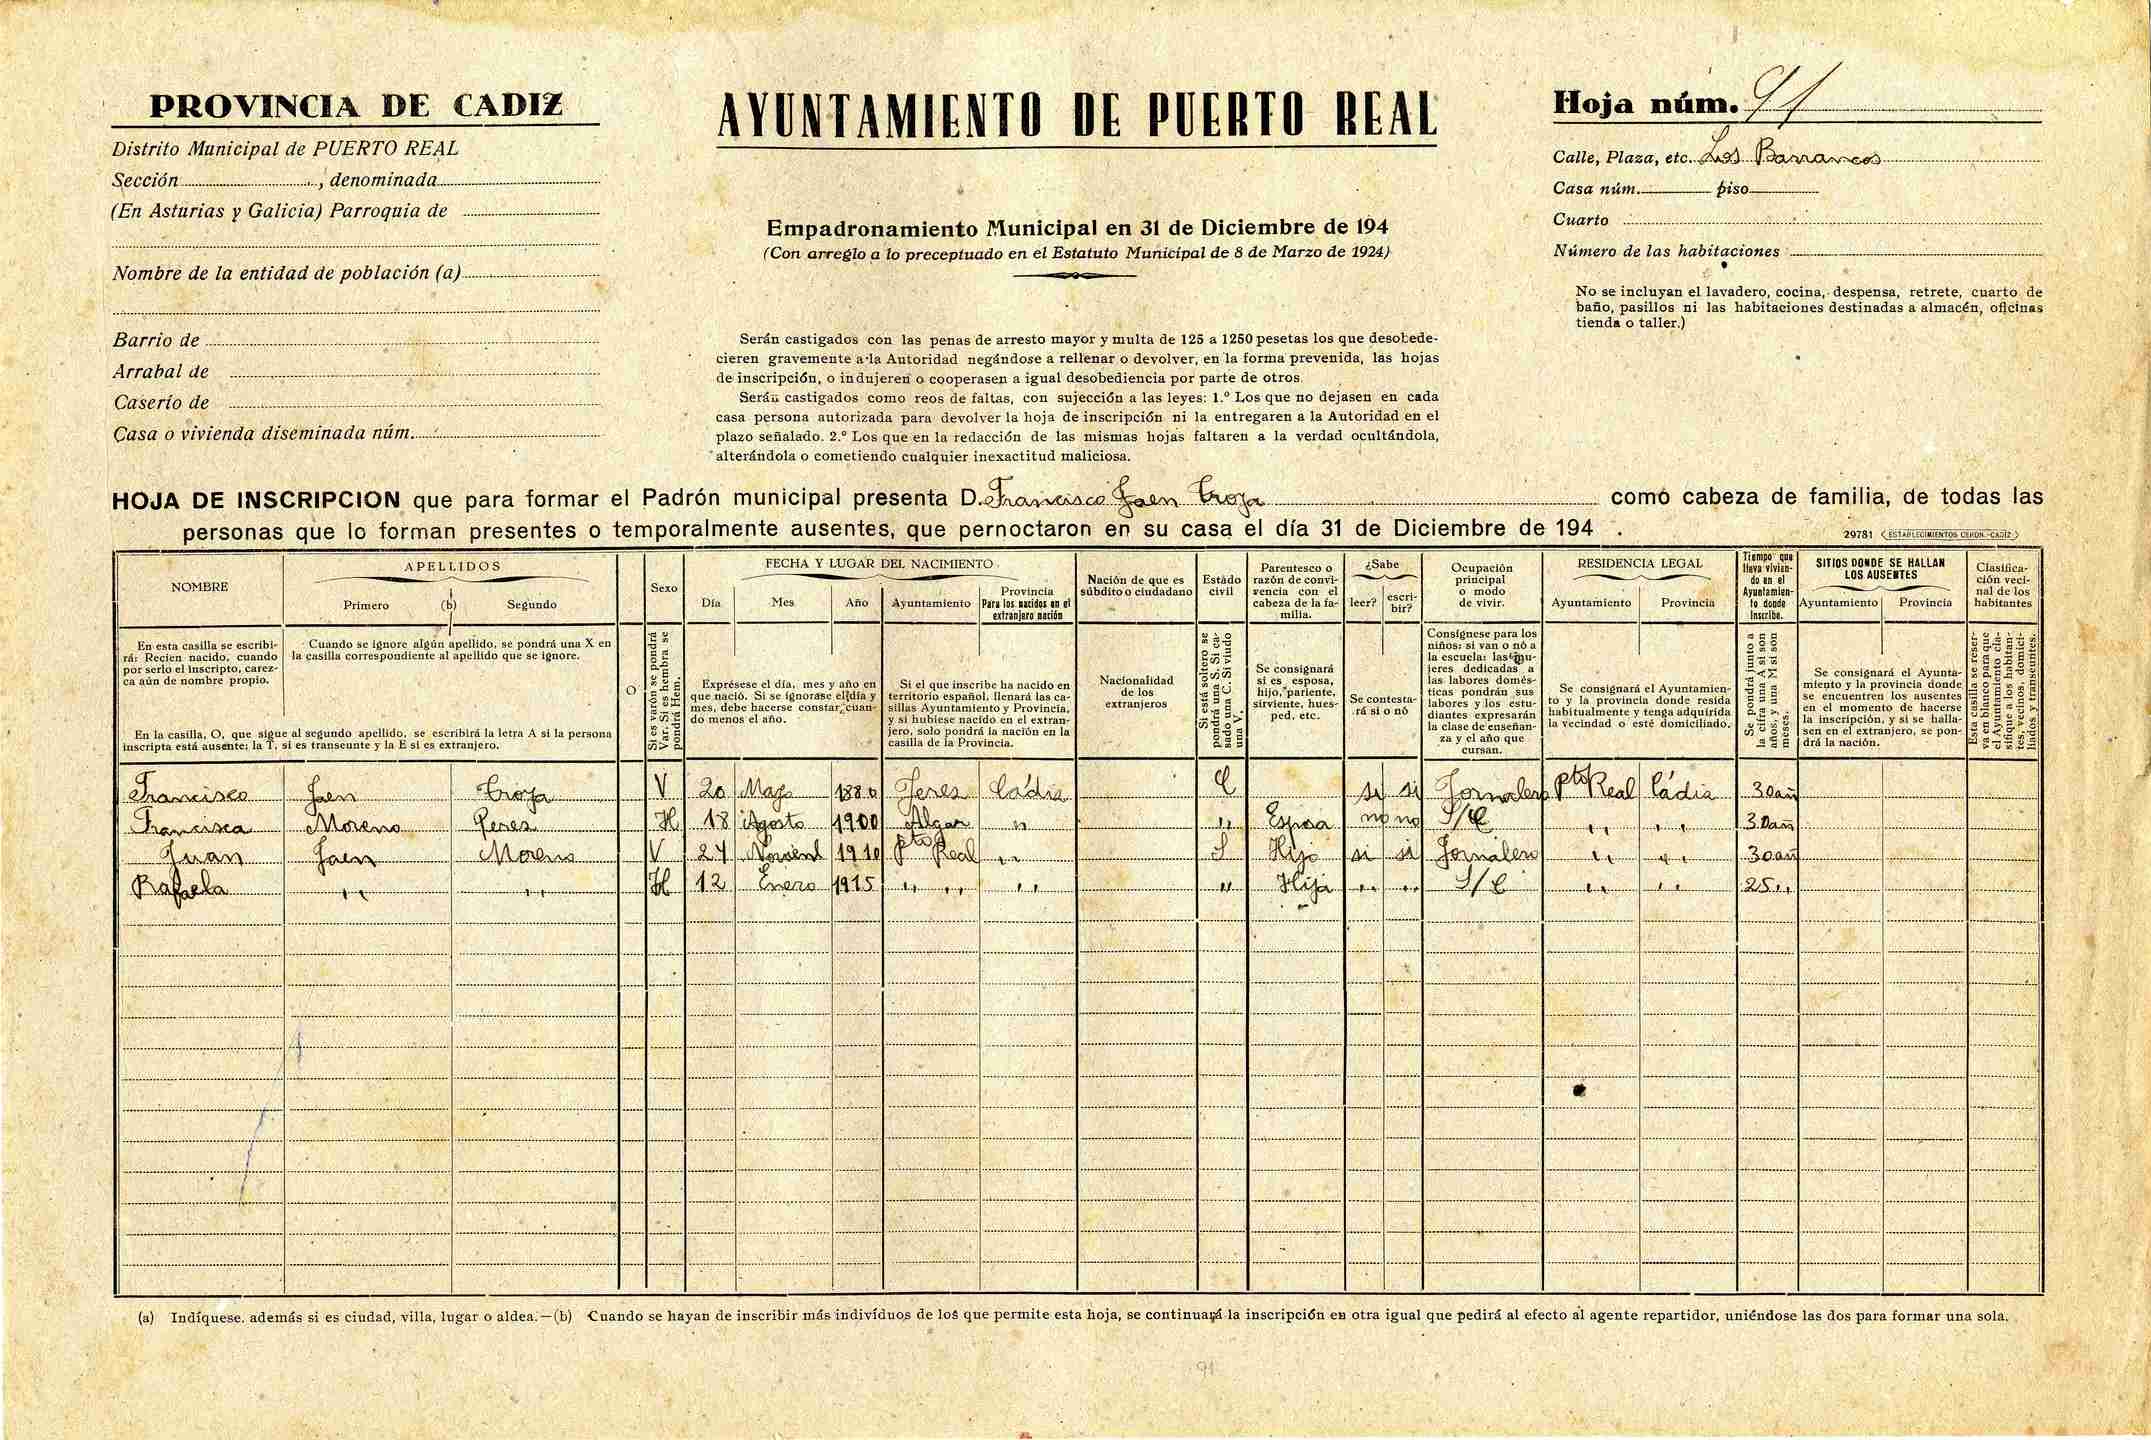 PROVINCIA DE CADIZ
Distrito Municipal de PUERTO REAL
Sección , denominada
(En Asturias y Galicia) Parroquia de
Nombre de la entidad de población (a)
Barrio de
Arrabal de
Caserío de
Casa o vivienda diseminada núm.
AYUNTAMIENTO DE PUERTO REAL
Empadronamiento Municipal en 31 de Diciembre de 194
(Con arreglo a lo preceptuado en el Estatuto Municipal de 8 de Marzo de 1924)
Serán castigados con las penas de arresto mayor y multa de 125 a 1250 pesetas los que desobede-
cieren gravemente a la Autoridad negándose a rellenar o devolver, en la forma prevenida, las hojas
de inscripción, o indujeren o cooperasen a igual desobediencia por parte de otros.
Serán castigados como reos de faltas, con sujección a las leyes: 1.º Los que no dejasen en cada
casa persona autorizada para devolver la hoja de inscripción ni la entregaren a la Autoridad en el
plazo señalado. 2.º Los que en la redacción de las mismas hojas faltaren a la verdad ocultándola,
alterándola o cometiendo cualquier inexactitud maliciosa.
Hoja núm. 91
Calle, Plaza, etc. Los Barrancos
Casa núm. piso
Cuarto
Número de las habitaciones
No se incluyan el lavadero, cocina, despensa, retrete, cuarto de
baño, pasillos ni las habitaciones destinadas a almacén, oficinas
tienda o taller.)
HOJA DE INSCRIPCION que para formar el Padrón municipal presenta D. Francisco Jaen Troja como cabeza de familia, de todas las
personas que lo forman presentes o temporalmente ausentes, que pernoctaron en su casa el día 31 de Diciembre de 194 .
29781 (ESTABLECIMIENTOS CERON.-CADIZ)
NOMBRE
APELLIDOS
Primero (b) Segundo
O
Sexo
FECHA Y LUGAR DEL NACIMIENTO
Día Mes Año Ayuntamiento
Provincia
Para los nacidos en el
extranjero nación
Nación de que es
súbdito o ciudadano
Estado
civil
Parentesco o
razón de convi-
vencia con el
cabeza de la fa-
milia.
¿Sabe
leer? escri-
bir?
Ocupación
principal
o modo
de vivir.
RESIDENCIA LEGAL
Ayuntamiento Provincia
Tiempo que
lleva vivien-
do en el
Ayuntamien-
to donde
inscribe.
SITIOS DONDE SE HALLAN
LOS AUSENTES
Ayuntamiento Provincia
Clasifica-
ción veci-
nal de los
habitantes
En esta casilla se escribi-
rá: Recien nacido, cuando
por serlo el inscripto, carez-
ca aún de nombre propio.
Cuando se ignore algún apellido, se pondrá una X en
la casilla correspondiente al apellido que se ignore.
En la casilla, O, que sigue al segundo apellido, se escribirá la letra A si la persona
inscripta está ausente; la T, si es transeunte y la E si es extranjero.
Si es varón se pondrá
Var. Si es hembra se
pondrá Hem.
Exprésese el día, mes y año en
que nació. Si se ignorase el día y
mes, debe hacerse constar, cuan-
do menos el año.
Si el que inscribe ha nacido en
territorio español, llenará las ca-
sillas Ayuntamiento y Provincia,
y si hubiese nacido en el extran-
jero, solo pondrá la nación en la
casilla de la Provincia.
Nacionalidad
de los
extranjeros
Si está soltero se
pondrá una S. Si ca-
sado una C. Si viudo
una V.
Se consignará
si es esposa,
hijo, pariente,
sirviente, hues-
ped, etc.
Se contesta-
rá si o nó
Consígnese para los
niños: si van o nó a
la escuela: las mu-
jeres dedicadas a
las labores domés-
ticas pondrán sus
labores y los estu-
diantes expresarán
la clase de enseñan-
za y el año que
cursan.
Se consignará el Ayuntamien-
to y la provincia donde resida
habitualmente y tenga adquirida
la vecindad o esté domiciliado.
Se pondrá junto a
la cifra una A si son
años, y una M si son
meses.
Se consignará el Ayunta-
miento y la provincia donde
se encuentren los ausentes
en el momento de hacerse
la inscripción, y si se halla-
sen en el extranjero, se pon-
drá la nación.
Esta casilla se reser-
va en blanco para que
el Ayuntamiento cla-
sifique a los habitan-
tes, vecinos, domici-
liados y transeuntes.
Francisco Jaen Troja V 20 Mayo 1880 Jeres Cádiz C si si Jornalero Pto Real Cádiz 30 añ
Francisca Moreno Peres H 18 Agosto 1900 Algar " " Esposa no no S/C " " 30 añ
Juan Jaen Moreno V 24 1910 Pto Real " S Hijo si si Jornalero " " 30 añ
Rafaela " " H 12 Enero 1915 " " " " Hija " " S/C " " 25 "
(a) Indíquese. además si es ciudad, villa, lugar o aldea.—(b) Cuando se hayan de inscribir más indivíduos de los que permite esta hoja, se continuará la inscripción en otra igual que pedirá al efecto al agente repartidor, uniéndose las dos para formar una sola.
91